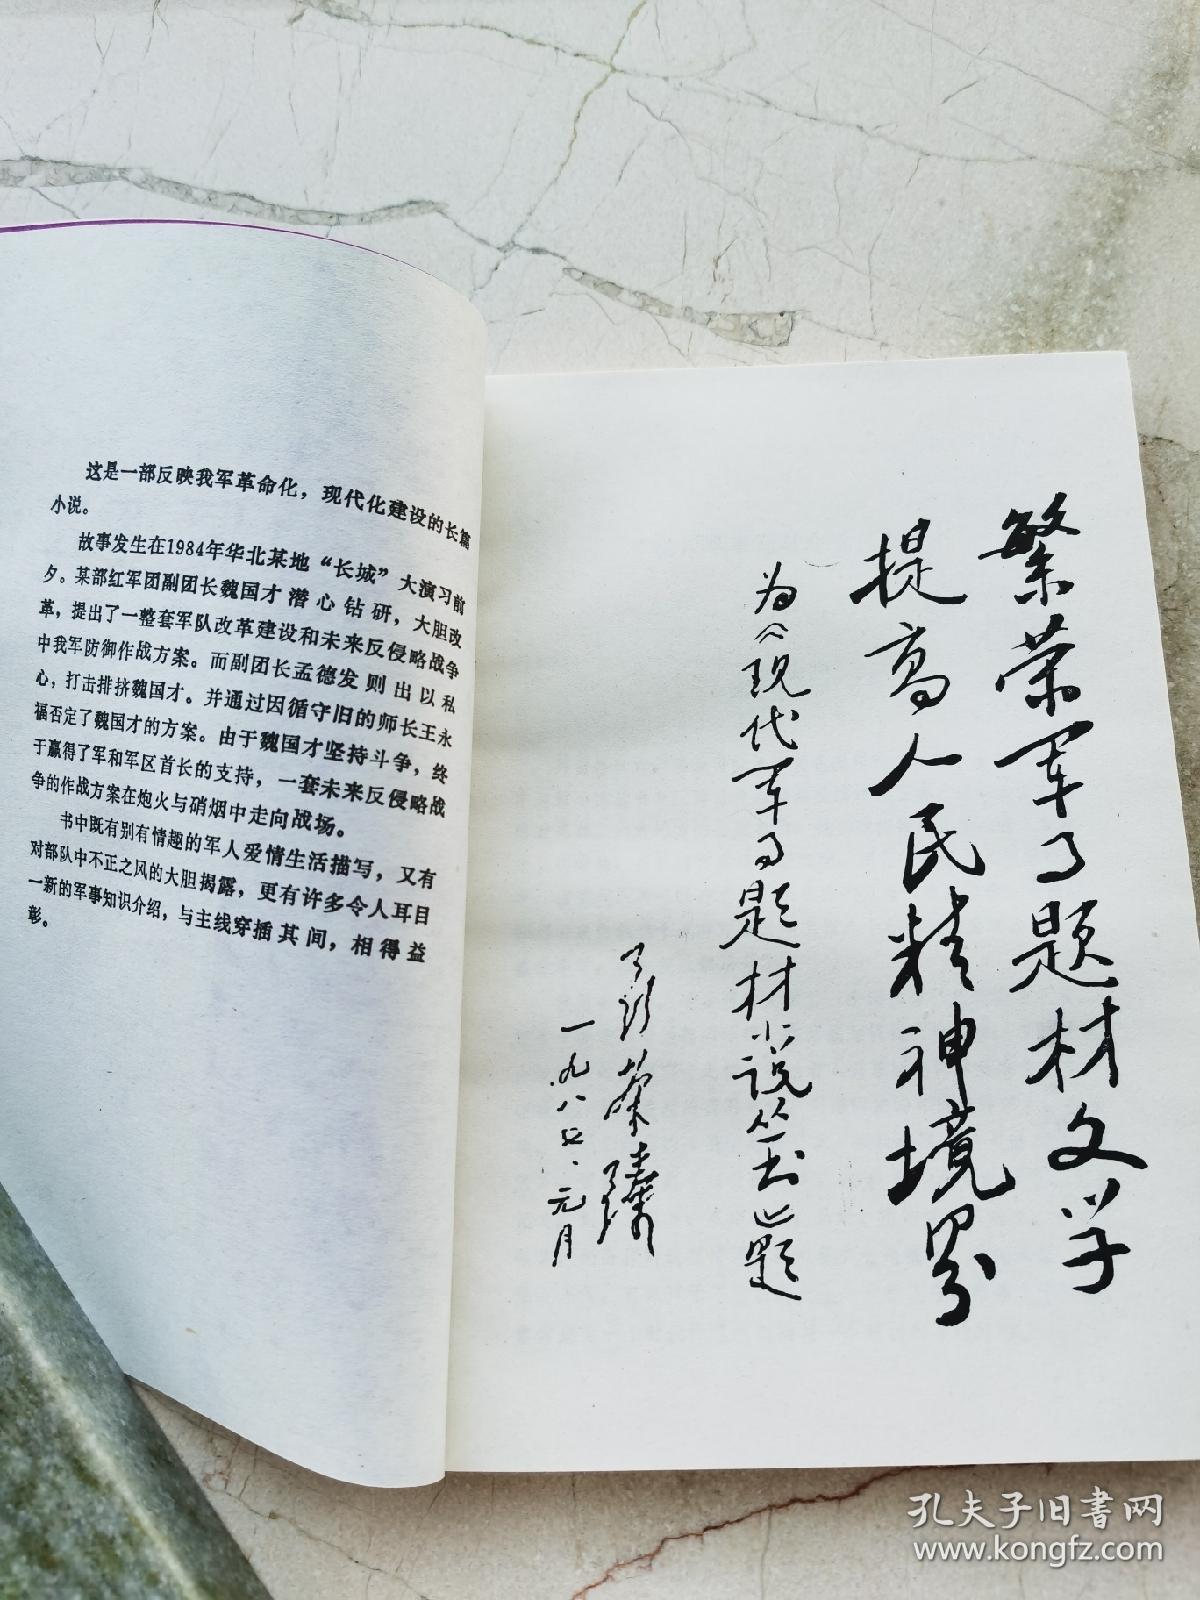 这是一部反映我军革命化，现代化建设的长篇
小说。
故事发生在1984年华北某地“长城”大演习前
夕。某部红军团副团长魏国才潜心钻研，大胆改
革，提出了一整套军队改革建设和未来反侵略战争
中我军防御作战方案。而副团长孟德发则出以私
心，打击排挤魏国才。并通过因循守旧的师长王永
福否定了魏国才的方案。由于魏国才坚持斗争，终
于赢得了军和军区首长的支持，一套未来反侵略战
争的作战方案在炮火与硝烟中走向战场。
书中既有别有情趣的军人爱情生活描写，又有
对部队中不正之风的大胆揭露，更有许多令人耳目
一新的军事知识介绍，与主线穿插其间，相得益
彰。
繁荣军事题材文学
提高人民精神境界
为《现代军事题材小说丛书》题
聂荣臻
一九八五.元月
孔夫子旧书网
www.kongfz.com